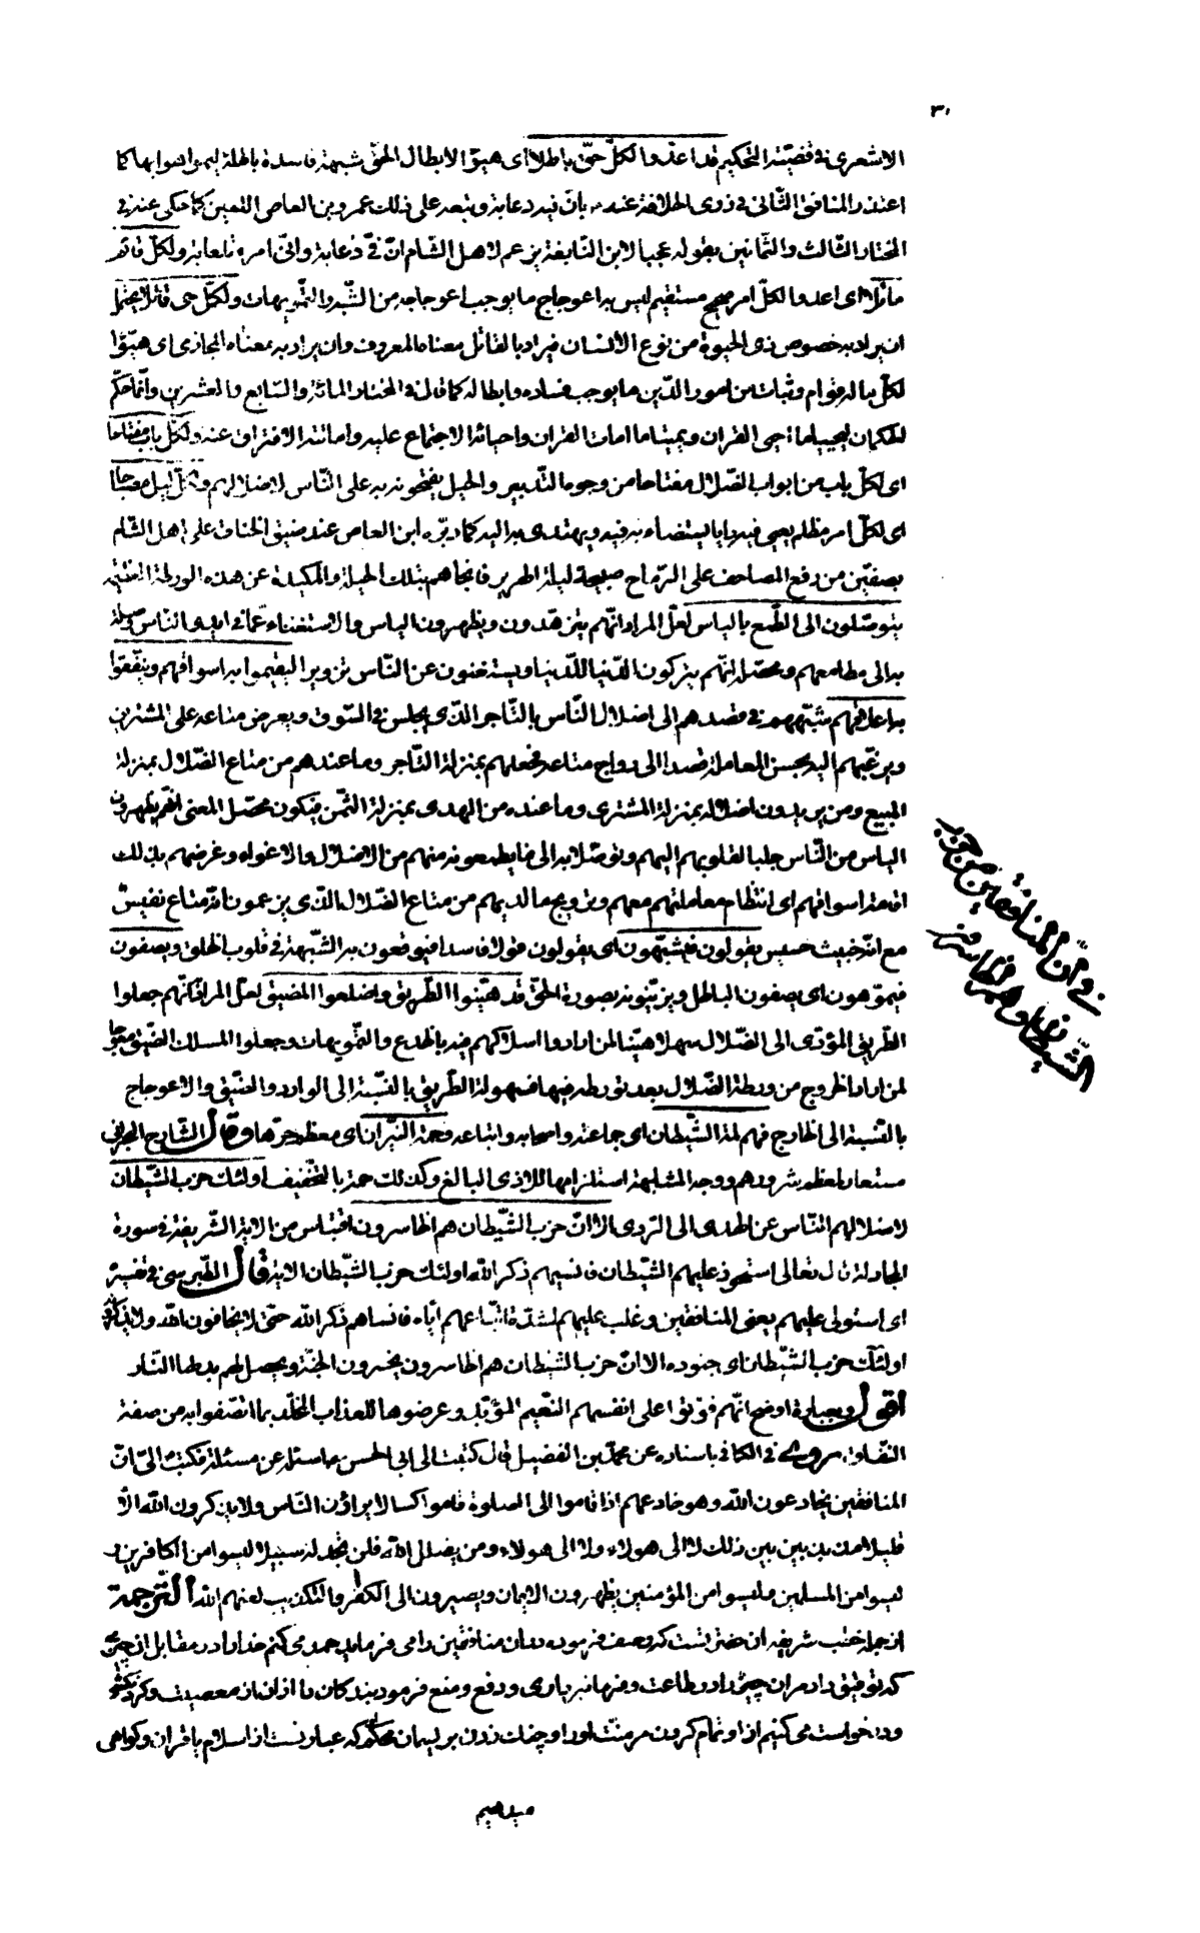 ٣٠
الاشعرى فى قضيّة التحكيم قد اعدّوا لكلّ حقّ باطلا اى هيؤا لابطال الحقّ شبهة فاسدة باطلة ليموّهوا بها كما
اعتذر المنافق الثّانى فى زوى الخلافة عنه بانّ فيه دعابة وتبعه على ذلك عمرو بن العاص اللّعين كما حكى عنه فى
المختار الثّالث والثّمانين بقوله عجبا لابن النّابغة يزعم لاهل الشّام انّ فىّ دعابة وانّى امرء تلعابة ولكلّ قائم
مائلا اى اعدوا لكلّ امر صحيح مستقيم ليس به اعوجاج ما يوجب اعوجاجه من الشّبه والتّمويهات ولكلّ حىّ قاتلا يحتمل
ان يراد به خصوص ذى الحيوة من نوع الانسان فيراد بالقاتل معناه المعروف وان يراد به معناه المجازى اى هيّؤا
لكلّ ما له قوام وثبات من امور الدّين ما يوجب فساده وابطاله كما قال فى المختار المائة والسّابع والعشرين وانّما حكّم
الحكمان ليحييا ما احيى القران ويميتا ما امات القران واحيائه الاجتماع عليه واماتته الافتراق عنه ولكلّ باب مفتاحا
اى لكلّ باب من ابواب الضّلال مفتاحا من وجوه التّدبير والحيل يفتحونه به على النّاس لاضلالهم ولكلّ ليل مصباحا
اى لكلّ امر مظلم يعيى فيه رايا يستضاء به فيه ويهتدى به اليه كما دبّره ابن العاص عند ضيق الخناق على اهل الشّام
بصفّين من رفع المصاحف على الرّماح صبيحة ليلة الهرير فانجاهم بتلك الحيلة والمكيدة عن هذه الورطة العظيمة
يتوصّلون الى الطّمع بالياس لعلّ المراد انّهم يتزهّدون ويظهرون الياس والاستغناء عمّا فى ايدى النّاس وصلة
به الى مطامعهم ومحصّله انّهم يتركون الدّنيا للدّنيا ويستغنون عن النّاس تزويرا ليقيموا به اسواقهم وينفّقوا
به اعلاقهم شبّههم فى قصدهم الى اضلال النّاس بالتّاجر الّذى يجلس فى السّوق ويعرض متاعه على المشترين
ويرغّبهم اليه بحسن المعاملة قصدا الى رواج متاعه فجعلهم بمنزلة التّاجر وما عندهم من متاع الضّلال بمنزلة
المبيع ومن يريدون اضلاله بمنزلة المشترى وما عنده من الهدى بمنزلة الثّمن فيكون محصّل المعنى انّهم يظهرون
الياس من النّاس جلبا لقلوبهم اليهم وتوصّلا به الى ما يطمعونه منهم من الاضلال والاغواء وغرضهم بذلك
اقامة اسواقهم اى انتظام معاملتهم معهم وترويج ما لديهم من متاع الضّلال الّذى يزعمون انّه متاع نفيس
مع انّه خبيث خسيس يقولون فيشبّهون اى يقولون قولا فاسدا فيوقعون به الشّبهة فى قلوب الخلق ويصفون
فيموّهون اى يصفون الباطل ويزيّنونه بصورة الحقّ قد هيّنوا الطّريق واضلعوا المضيق لعلّ المراد انّهم جعلوا
الطّريق المؤدّى الى الضّلال سهلا هيّنا لمن ارادوا اسلاكهم فيه بالخدع والتّمويهات وجعلوا المسلك الضّيّق معوجا
لمن اراد الخروج من ورطة الضّلال بعد تورطه فيها فسهولة الطّريق بالنّسبة الى الوارد والضّيق والاعوجاج
بالنّسبة الى الخارج فهم لمة الشّيطان اى جماعته واصحابه واتباعه وحمة النّيران اى معظم حرّها وقال الشّارح البحرانى
مستعار لمعظم شرورهم ووجه المشابهة استلزامها للاذى البالغ وكذلك حمة بالتّخفيف اولئك حزب الشّيطان
لاضلالهم النّاس عن الهدى الى الرّدى الا انّ حزب الشّيطان هم الخاسرون اقتباس من الاية الشّريفة فى سورة
المجادلة قال تعالى استحوذ عليهم الشّيطان فانسيهم ذكر الله اولئك حزب الشّيطان الاية قال الطّبرسى فى تفسيره
اى استولى عليهم يعنى المنافقين وغلب عليهم لشدّة اتّباعهم ايّاه فانساهم ذكر الله حتّى لا يخافون الله ولا يذكرونه
اولئك حزب الشّيطان اى جنوده الا انّ حزب الشّيطان هم الخاسرون يخسرون الجنّة ويحصل لهم بدلها النّار
اقول وبعبارة اوضح انّهم فوّتوا على انفسهم النّعيم المؤبّد وعرضوها للعذاب المخلّد بما اتّصفوا به من صفة
النّفاق روى فى الكافى باسناده عن محمّد بن الفضيل قال كتبت الى ابى الحسن ع اسئله عن مسئلة فكتب الىّ انّ
المنافقين يخادعون الله وهو خادعهم اذا قاموا الى الصلوة قاموا كسالى يراؤن النّاس ولا يذكرون الله الّا
قليلا مذبذبين بين ذلك لا الى هولاء ولا الى هولاء ومن يضلل الله فلن تجد له سبيلا ليسوا من الكافرين و
ليسوا من المسلمين وليسوا من المؤمنين يظهرون الايمان ويصيرون الى الكفر والتكذيب لعنهم الله التّرجمة
از جمله خطب شريفه ان حضرتست كه وصف فرموده در ان منافقين را مى فرمايد حمد مى كنم خدا را در مقابل ان چيزى
كه توفيق داد مر ان چيز را در طاعت وفرمانبردارى ودفع ومنع فرمود بندكان را از ان از معصيت وكردنكشى
ودرخواست مى كنيم از او تمام كردن مر منّت او را وچنك زدن بريسمان محكم او كه عبارتست از اسلام يا قران وكواهى
ميدهيم
فى انّ المنافقين من حزب
الشّيطان وهم الخاسرون